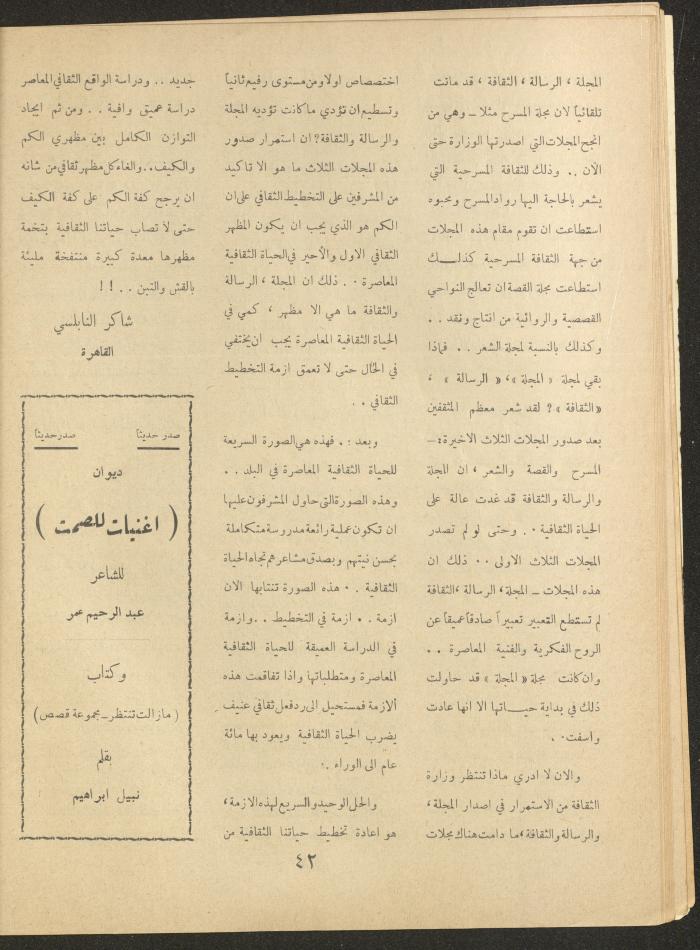 المجلة ، الرسالة ، الثقافة ، قد ماتت
تلقائياً لان مجلة المسرح مثلا ـ وهي من
انجح المجلات التي اصدرتها الوزارة حتى
الآن .. وذلك للثقافة المسرحية التي
يشعر بالحاجة اليها رواد المسرح ومحبوه
استطاعت ان تقوم مقام هذه المجلات
من جهة الثقافة المسرحية كذلك
استطاعت مجلة القصة ان تعالج النواحي
القصصية والروائية من انتاج ونقد ..
وكذلك بالنسبة لمجلة الشعر .. فماذا
بقي لمجلة « المجلة » ، « الرسالة » ،
«الثقافة» ؟ لقد شعر معظم المثقفين
بعد صدور المجلات الثلاث الاخيرة :ـ
المسرح والقصة والشعر ، ان المجلة
والرسالة والثقافة قد غدت عالة على
الحياة الثقافية .. وحتى لو لم تصدر
المجلات الثلاث الاولى .. ذلك ان
هذه المجلات ـ المجلة ، الرسالة ، الثقافة
لم تستطع التعبير تعبيراً صادقاً عميقاً عن
الروح الفكرية والفنية المعاصرة ..
وان كانت مجلة « المجلة » قد حاولت
ذلك في بداية حياتها الا انها عادت
واسفت ..
والان لا ادري ماذا تنتظر وزارة
الثقافة من الاستمرار في اصدار المجلة ،
والرسالة والثقافة ، ما دامت هناك مجلات
اختصاص اولا ومن مستوى رفيع ثانياً
وتسطيع ان تؤدي ما كانت تؤديه المجلة
والرسالة والثقافة ؟ ان استمرار صدور
هذه المجلات الثلاث ما هو الا تاكيد
من المشرفين على التخطيط الثقافي على ان
الكم هو الذي يجب ان يكون المظهر
الثقافي الاول والأخير في الحياة الثقافية
المعاصرة .. ذلك ان المجلة ، الرسالة
والثقافة ما هي الا مظهر ، كمي في
الحياة الثقافية المعاصرة يجب ان يختفي
في الحال حتى لا تعمق ازمة التخطيط
الثقافي ..
وبعد .. فهذه هي الصورة السريعة
للحياة الثقافية المعاصرة في البلد ..
وهذه الصورة التي حاول المشرفون عليها
ان تكون عملية رائعة مدروسة متكاملة
بحسن نيتهم وبصدق مشاعرهم تجاه الحياة
الثقافية .. هذه الصورة تنتابها الان
ازمة .. ازمة في التخطيط .. وازمة
في الدراسة العميقة للحياة الثقافية
المعاصرة ومتطلباتها واذا تفاقمت هذه
الازمة فستحيل الى رد فعل ثقافي عنيف
يضرب الحياة الثقافية ويعود بها مائة
عام الى الوراء .
والحل الوحيد والسريع لهذه الازمة ،
هو اعادة تخطيط حياتنا الثقافية من
جديد .. ودراسة الواقع الثقافي المعاصر
دراسة عميق وافية .. ومن ثم ايجاد
التوازن الكامل بين مظهري الكم
والكيف .. والغاء كل مظهر ثقافي من شانه
ان يرجح كفة الكم على كفة الكيف
حتى لا تصاب حياتنا الثقافية بتخمة
مظهرها معدة كبيرة منتفخة مليئة
بالقش والتبن .. !!
شاكر النابلسي
القاهرة
صدر حديثاً صدر حديثاً
ديوان
( اغنيات للصمت )
للشاعر
عبد الرحيم عمر
وكتاب
( مازالت تنتظر ـ مجموعة قصص )
بقلم
نبيل ابراهيم
٤٢